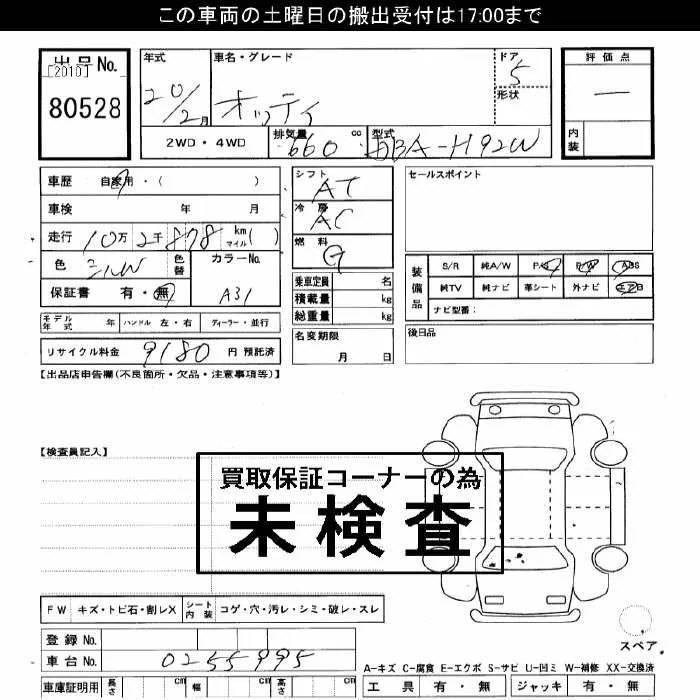 この車両の土曜日の搬出受付は17:00まで
出品No.
[2010]
80528
年式
20/2月
車名・グレード
オッティ
ドア
5
形状
2WD・4WD
排気量
660 cc
型式
DBA-H92W
評価点
―
内装
車歴 自家用・( )
車検 年 月
走行 10万2千878 km マイル( )
色 シルバ 色替
カラーNo.
A31
保証書 有・無
モデル年式 年 ハンドル 左・右 ディーラー・並行
リサイクル料金 9180 円 預託済
シフト
AT
冷房
AC
燃料
G
乗車定員 名
積載量 kg
総重量 kg
名変期限
月 日
セールスポイント
装備品
S/R 純A/W P/S P/W ABS
純TV 純ナビ 革シート 外ナビ エアB
ナビ型番:
後日品
【出品店申告欄(不良箇所・欠品・注意事項等)】
【検査員記入】
買取保証コーナーの為
未検査
FW キズ・トビ石・割レX シート内装 コゲ・穴・汚レ・シミ・破レ・スレ
登録No.
車台No. 0255995
車庫証明用 長さ cm 幅 cm 高さ cm
スペア
A-キズ C-腐食 E-エクボ S-サビ U-凹ミ W-補修 XX-交換済
工具 有・無 ジャッキ 有・無